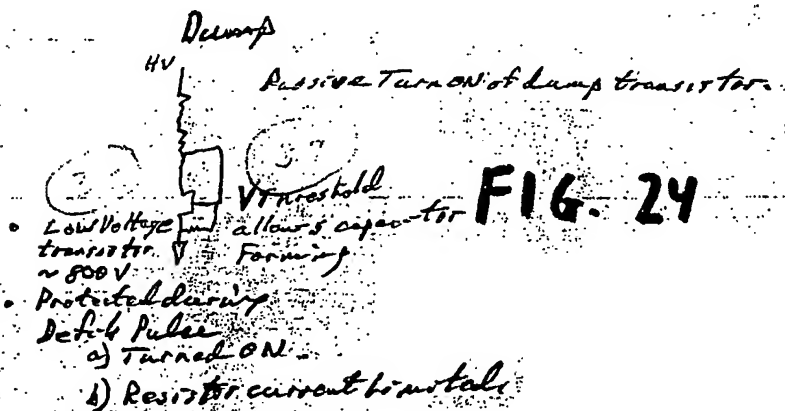 Dump
HV
Passive Turn ON of dump transistor.
VThreshold
allows capacitor
Forming
FIG. 24
• Low Voltage
transistor
~ 800 V
• Protected during
Defib Pulse
a) Turned ON
b) Resistor current limited